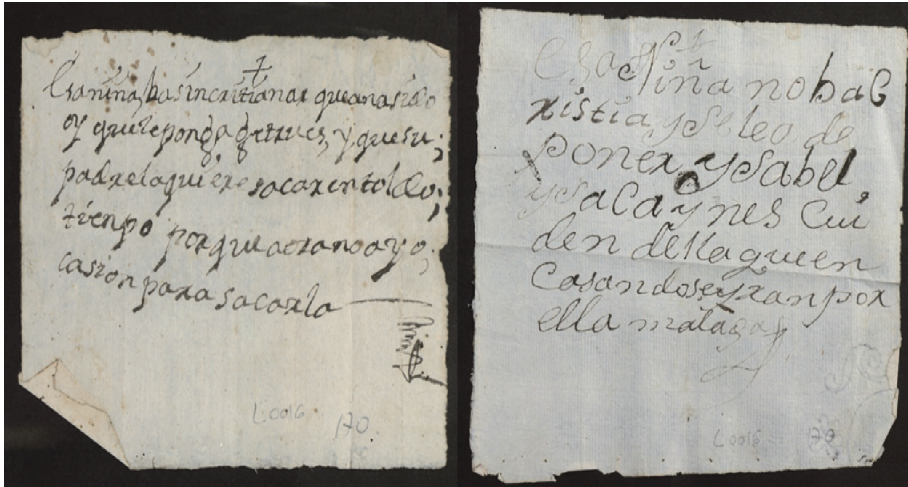 Esa niña ba sin critianar que anasido
oy que le ponga gertrues, y que su;
padre la quiere sacar en todo;
tienpo porque aora no ay o;
casion para sacarla
L0016
170
Esa Niña no ba C
xistia y se leo de
poner ysabel
ysaca ynes Cui
den della que en
Casandose yran por
ella malaga
L0016